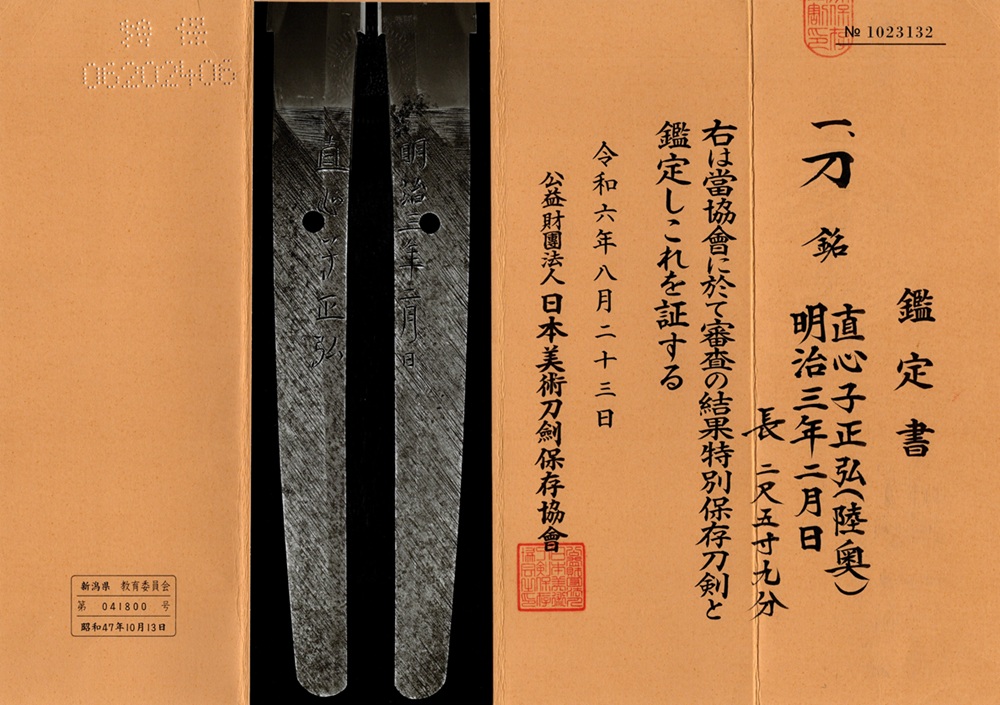 № 1023132
鑑定書
一、刀 銘 直心子正弘(陸奥)
明治三年二月日
長 二尺五寸九分
右は當協會に於て審査の結果特別保存刀剣と
鑑定しこれを証する
令和六年八月二十三日
公益財團法人 日本美術刀劍保存協會
明治三年二月日
直心子正弘
特保
06202406
新潟県 教育委員会
第 041800 号
昭和47年10月13日